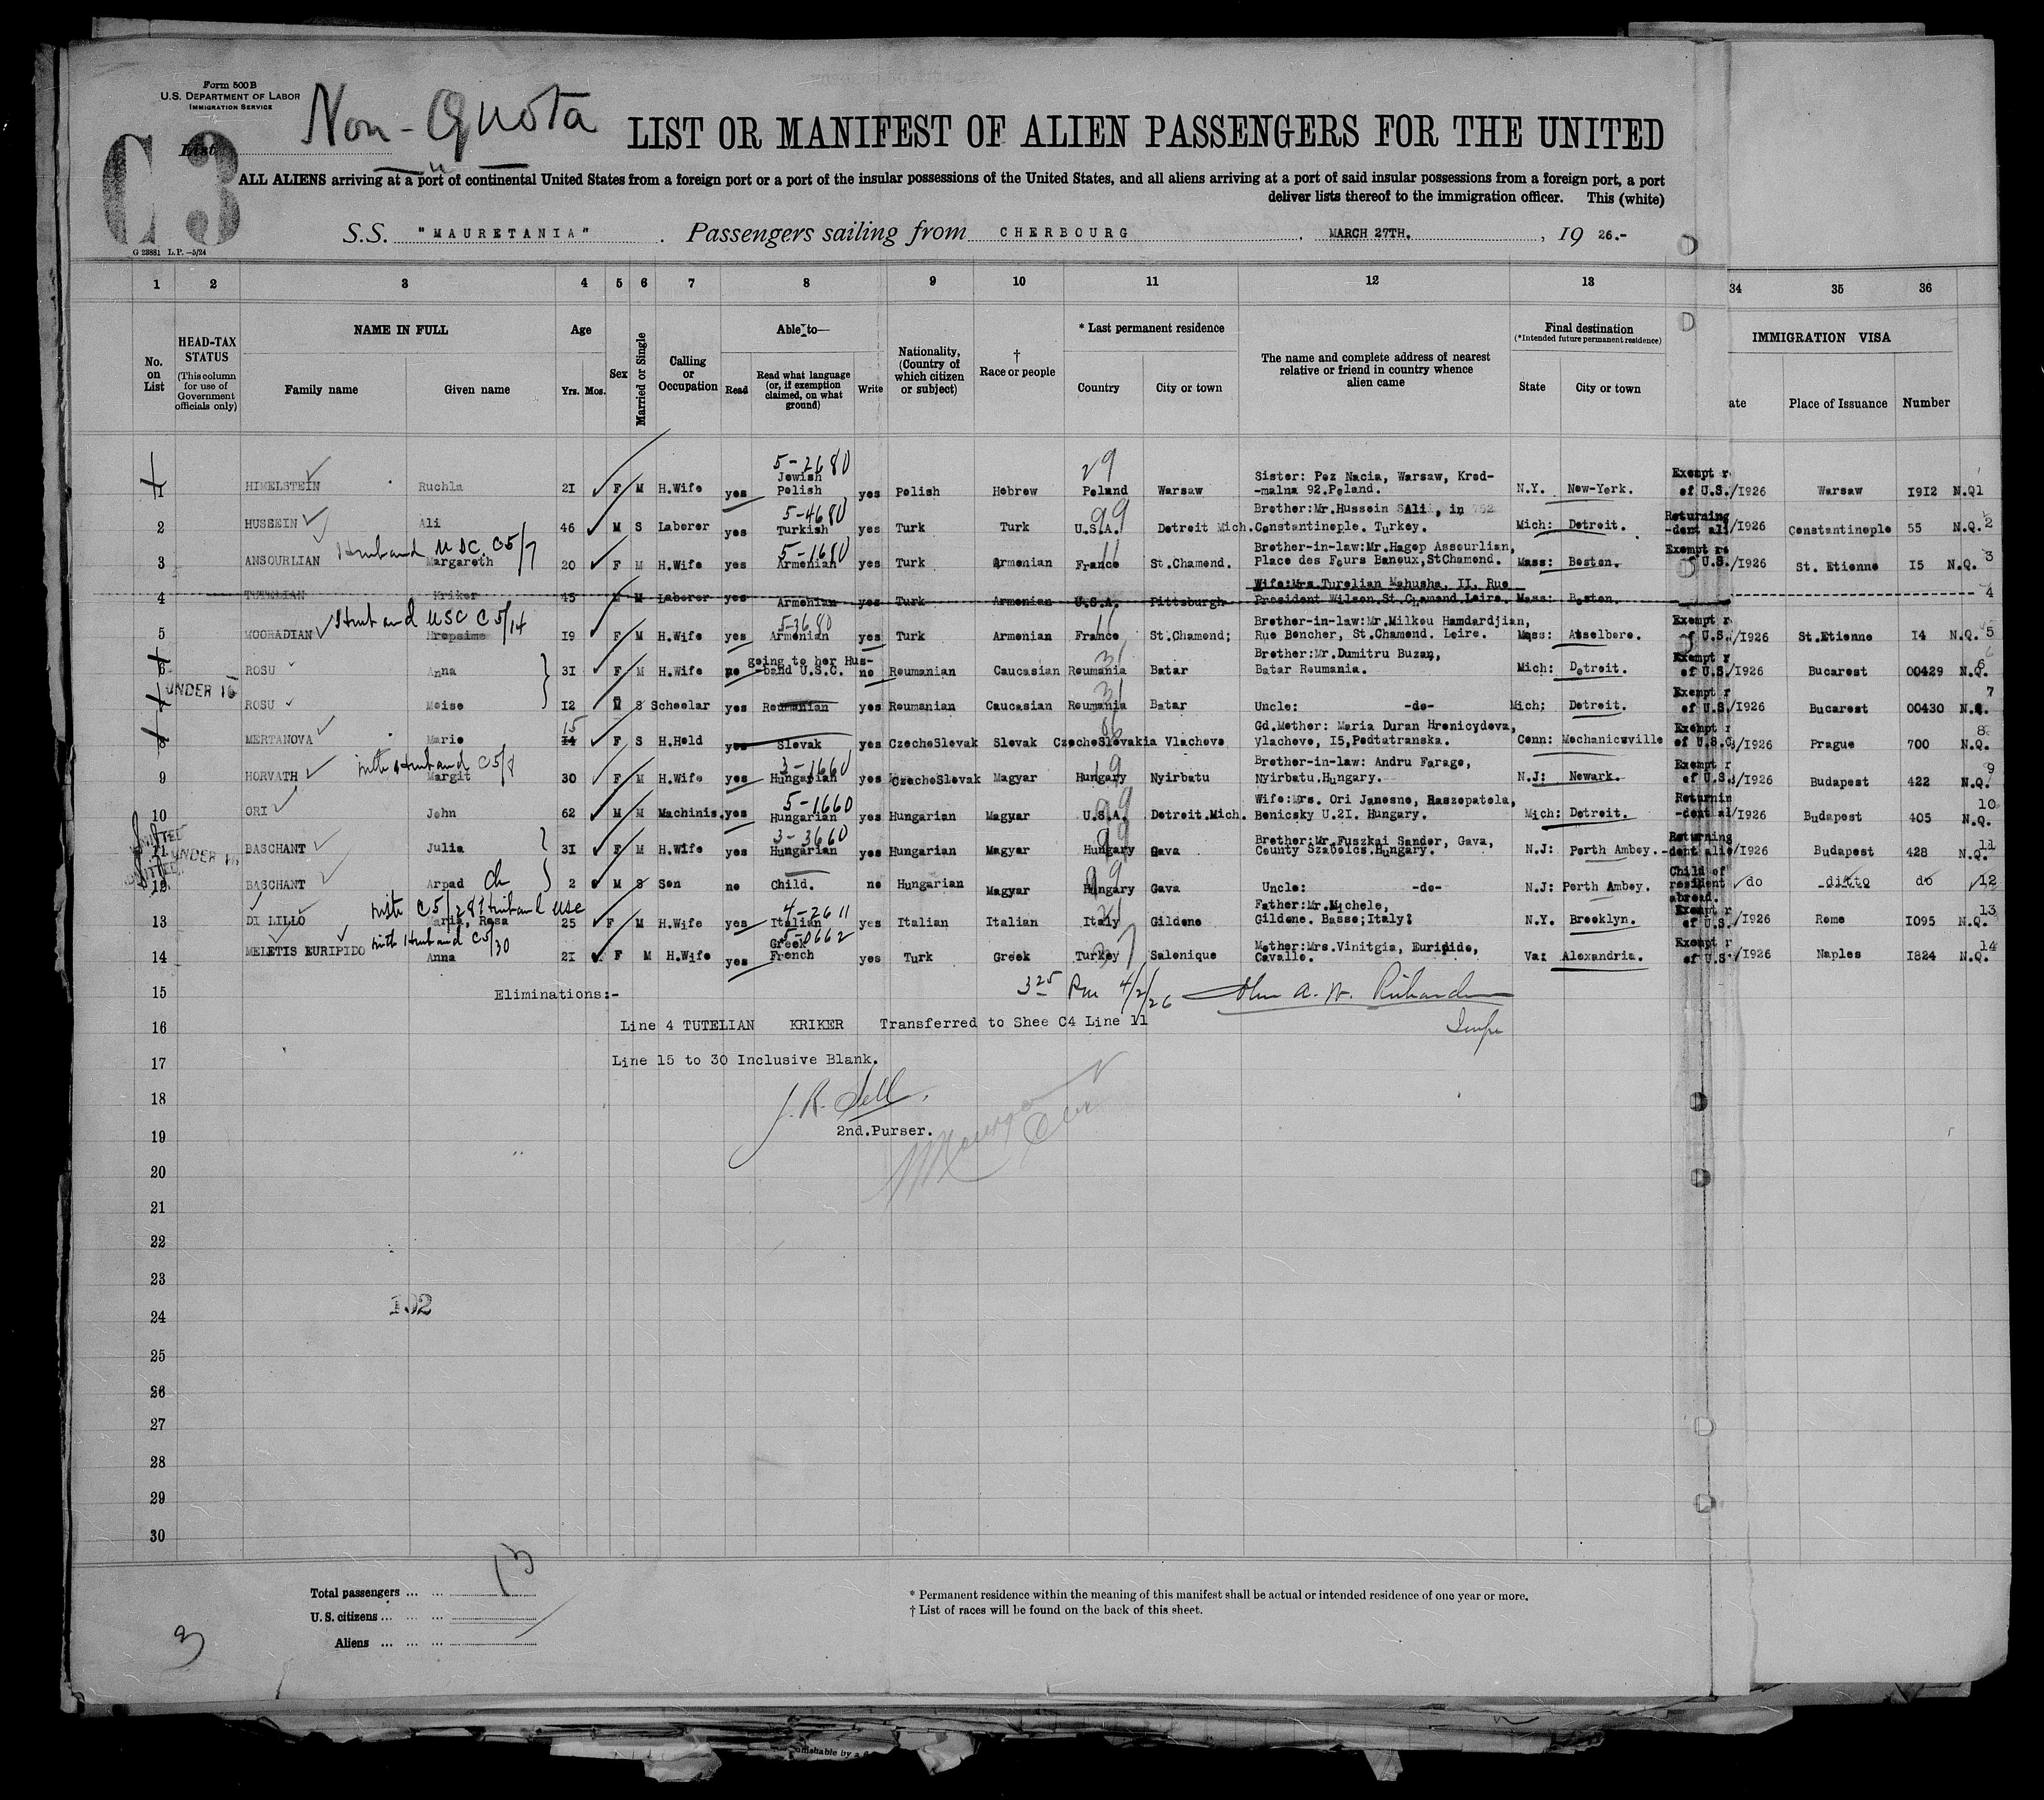 Form 500 B
U.S. DEPARTMENT OF LABOR
IMMIGRATION SERVICE
Non-Quota
C3
List
LIST OR MANIFEST OF ALIEN PASSENGERS FOR THE UNITED
ALL ALIENS arriving at a port of continental United States from a foreign port or a port of the insular possessions of the United States, and all aliens arriving at a port of said insular possessions from a foreign port, a port
deliver lists thereof to the immigration officer. This (white)
S.S. "MAURETANIA" . Passengers sailing from CHERBOURG , MARCH 27TH. , 19 26.-
G 23881 L.P.—5/24
1 2 3 4 5 6 7 8 9 10 11 12 13 34 35 36
No. on List
HEAD-TAX STATUS (This column for use of Government officials only)
NAME IN FULL Family name Given name
Age Yrs. Mos.
Sex
Married or Single
Calling or Occupation
Able to— Read Read what language (or, if exemption claimed, on what ground) Write
Nationality, (Country of which citizen or subject)
† Race or people
* Last permanent residence Country City or town
The name and complete address of nearest relative or friend in country whence alien came
Final destination (*Intended future permanent residence) State City or town
IMMIGRATION VISA ate Place of Issuance Number
5-2680 29
1 HIMELSTEIN Ruchla 2I F M H.Wife yes Jewish Polish yes Polish Hebrew Poland Warsaw Sister: Pez Nacia, Warsaw, Krod- -malna 92.Poland. N.Y. New-York. Exempt r of U.S. /I926 Warsaw I9I2 N.Q 1
5-4680 99
2 HUSSEIN Ali 46 M S Laborer yes Turkish yes Turk Turk U.S.A. Detroit Mich. Brother:Mr.Hussein SAli, in Constantinople. Turkey. Mich: Detroit. Returning -dent ali /I926 Constantinople 55 N.Q. 2
Husband USC. C5/7 5-1680 11
3 ANSOURLIAN Margareth 20 F M H.Wife yes Armenian yes Turk Armenian France St.Chamond. Brother-in-law:Mr.Hagop Assourlian, Place des Fours Banoux,StChamond. Mass: Boston. Exempt re of U.S. /I926 St. Etienne I5 N.Q. 3
4 TUTELIAN Kriker 45 M M Laborer yes Armenian yes Turk Armenian U.S.A. Pittsburgh Wife:Mrs.Turelian Mahusha, II, Rue President Wilson.St.Chamond.Loire. Mass: Boston. 4
Husband USC C5/14 5-3680 11
5 MOORADIAN Hropsime I9 F M H.Wife yes Armenian yes Turk Armenian France St.Chamond; Brother-in-law:Mr.Milkou Hamdardjian, Rue Boncher, St.Chamond. Loire. Mass: Atselboro. Exempt r of U.S. /I926 St.Etienne I4 N.Q. 5
31
6 ROSU Anna 3I F M H.Wife no going to her Hus- -band U.S.C. no Roumanian Caucasian Roumania Batar Brother:Mr.Dumitru Buzan, Batar Roumania. Mich: Detroit. Exempt r of U.S. /I926 Bucarest 00429 N.Q. 6
UNDER 16 31
7 ROSU Moise I2 M S Schoolar yes Roumanian yes Roumanian Caucasian Roumania Batar Uncle: -do- Mich; Detroit. Exempt r of U.S. /I926 Bucarest 00430 N.Q. 7
15
8 MERTANOVA Marie 14 F S H.Hold yes Slovak yes CzechoSlovak Slovak CzechoSlovakia Vlachovo Gd.Mother: Maria Duran Hronicydova, Vlachovo, I5,Podtatranska. Conn: Mechanicsville Exempt r of U.S. /I926 Prague 700 N.Q. 8
with Husband C5/8 3-1660 19
9 HORVATH Margit 30 F M H.Wife yes Hungarian yes CzechoSlovak Magyar Hungary Nyirbatu Brother-in-law: Andru Farago, Nyirbatu.Hungary. N.J: Newark. Exempt r of U.S. /I926 Budapest 422 N.Q. 9
5-1660 99
10 ORI John 62 M M Machinis. yes Hungarian yes Hungarian Magyar U.S.A. Detroit.Mich. Wife:Mrs. Ori Janosne, Raszopatola, Benicsky U.2I. Hungary. Mich: Detroit. Returnin -dent al /I926 Budapest 405 N.Q. 10
ADMITTED 3-3660 99
11 BASCHANT Julia 3I F M H.Wife yes Hungarian yes Hungarian Magyar Hungary Gava Brother:Mr.Fuszkai Sandor, Gava, County Szabolcs.Hungary. N.J: Perth Amboy. Returning -dent alie /I926 Budapest 428 N.Q. 11
UNDER 16 99
12 BASCHANT Arpad ch 2 M S Son no Child. no Hungarian Magyar Hungary Gava Uncle: -do- N.J: Perth Amboy. Child of resident abroad. do ditto do 12
with C5/28 Husband USC 4-2611 21
13 DI LILLO Maria, Rosa 25 F M H.Wife yes Italian yes Italian Italian Italy Gildone Father:Mr.Michele, Gildone. Basso;Italy: N.Y. Brooklyn. Exempt r of U.S. /I926 Rome I095 N.Q. 13
with Husband C5/30 5-0662 37
14 MELETIS EURIPIDO Anna 2I F M H.Wife yes Greek French yes Turk Greek Turkey Salonique Mother:Mrs.Vinitgia, Euripide, Cavalle. Va: Alexandria. Exempt r of U.S. /I926 Naples I824 N.Q. 14
15 Eliminations:- 3 25 Pm 4/2/26 John A. W. Richardson
16 Line 4 TUTELIAN KRIKER Transferred to Shee C4 Line 11
17 Line 15 to 30 Inclusive Blank.
18 J. R. Sell
19 2nd.Purser.
20
21
22
23
102
24
25
26
27
28
29
30
Total passengers ... ... 13
U.S. citizens ... ... ...
Aliens ... ... ...
* Permanent residence within the meaning of this manifest shall be actual or intended residence of one year or more.
† List of races will be found on the back of this sheet.
3